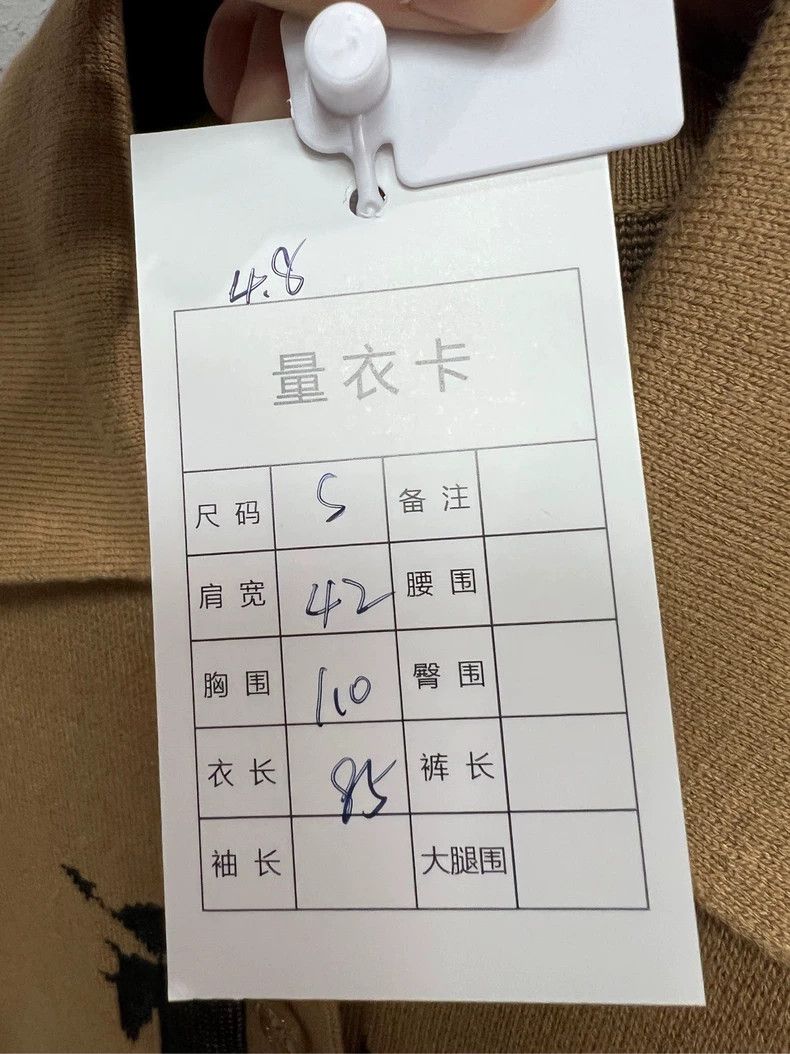 4.8
量衣卡
尺码 S 备注
肩宽 42 腰围
胸围 110 臀围
衣长 裤长
袖长 大腿围